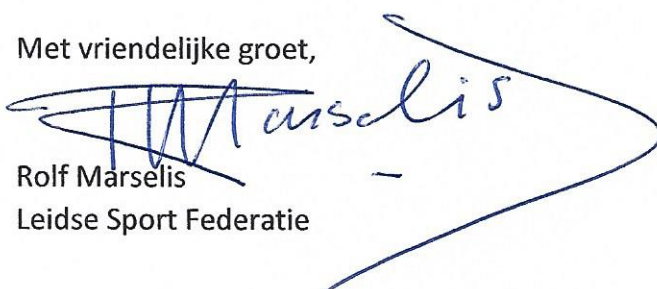 Met vriendelijke groet,
Marselis
Rolf Marselis
Leidse Sport Federatie